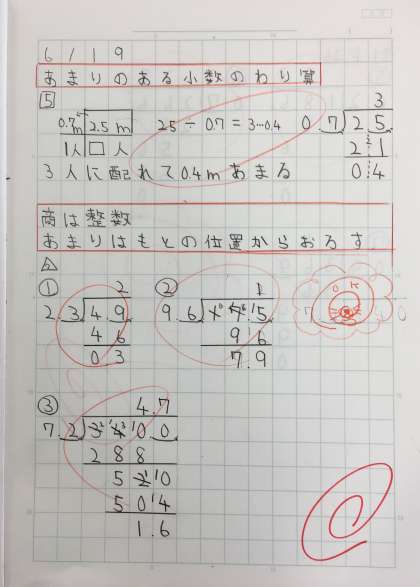 6/19
あまりのある小数のわり算
5
0.7m 2.5m 2.5÷0.7=3…0.4 0.7)2.5 3
1人 □人 2 1
3人に配れて0.4mあまる 0.4
商は整数
あまりはもとの位置からおろす
① 2 ② 1 OK
2.3)4.9 9.6)17.5
4 6 9 6
0.3 7.9
③ 4.7
7.2)34 0.0
2 8 8
5 2 0
5 0 4
1.6